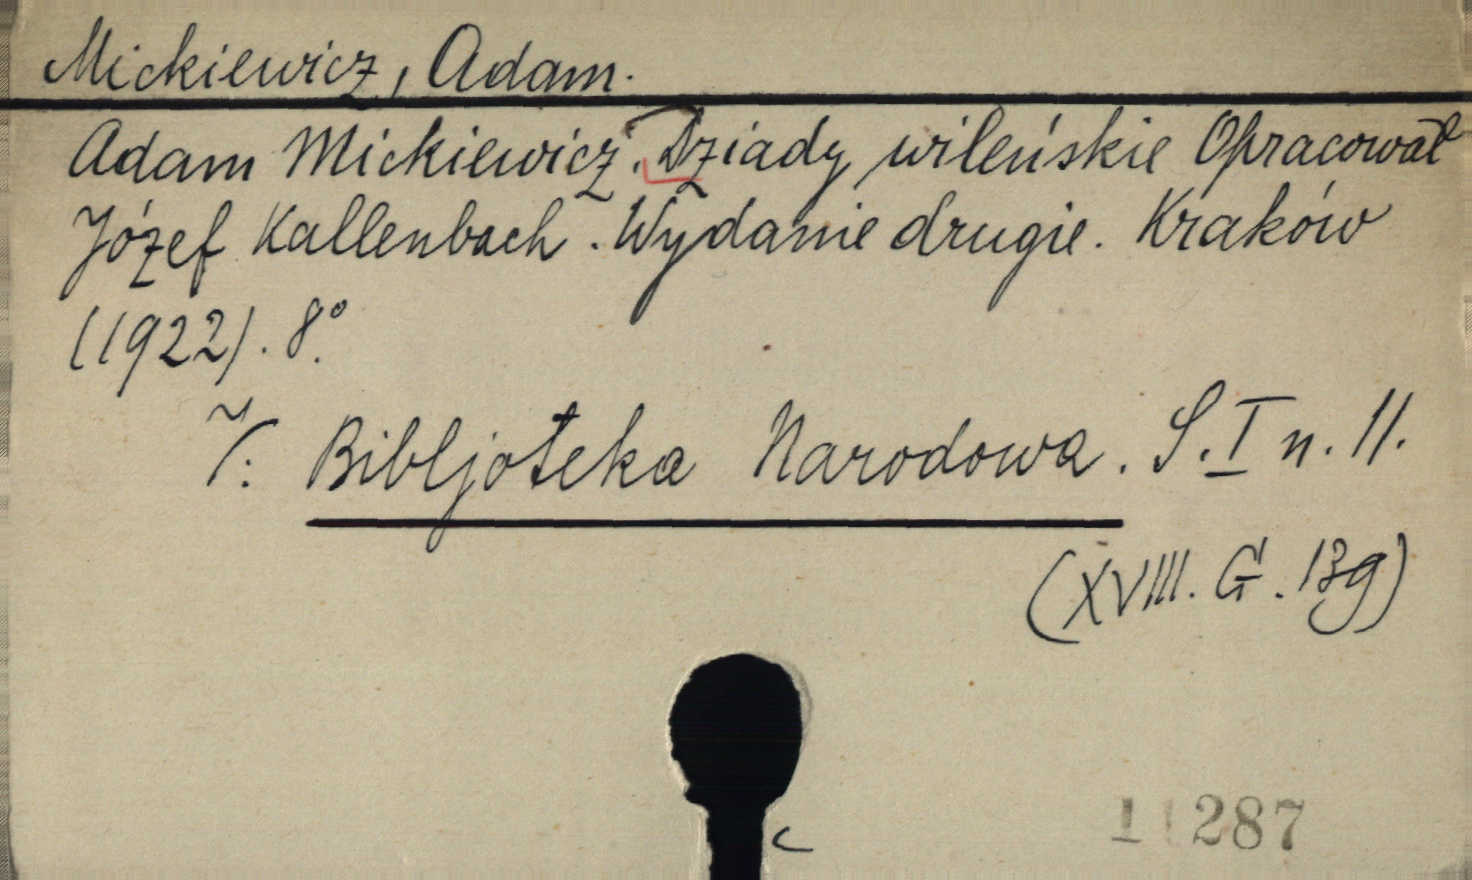 Mickiewicz, Adam.
Adam Mickiewicz. Dziady wileńskie Opracował
Józef Kallenbach. Wydanie drugie. Kraków
(1922). 8°.
Bibljoteka Narodowa. S. I n. 11.
(XVIII. G. 139)
287